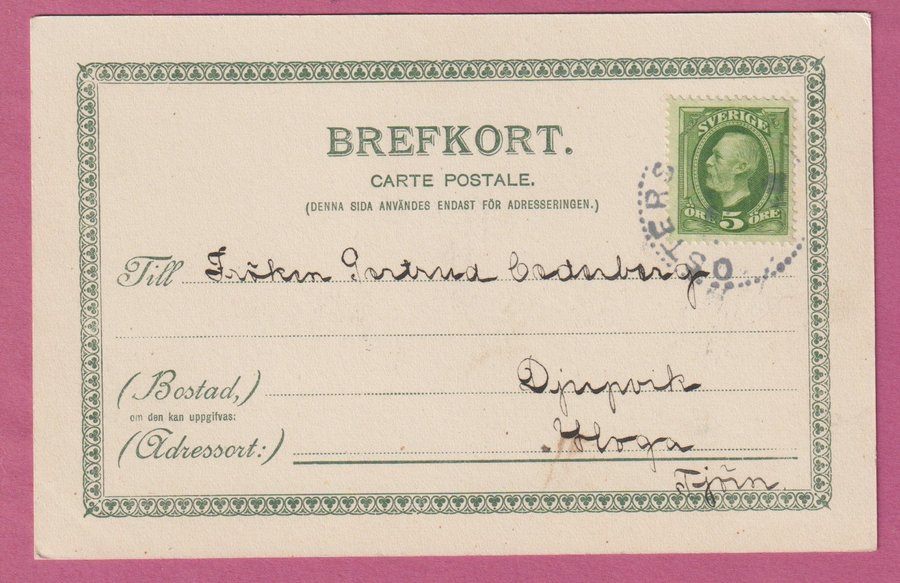 BREFKORT.
CARTE POSTALE.
(DENNA SIDA ANVÄNDES ENDAST FÖR ADRESSERINGEN.)
SVERIGE
5
ÖRE ÖRE
Till Fröken Gertrud Cederberg
(Bostad,)
om den kan uppgifvas:
Djupvik
(Adressort:)
Tjörn.